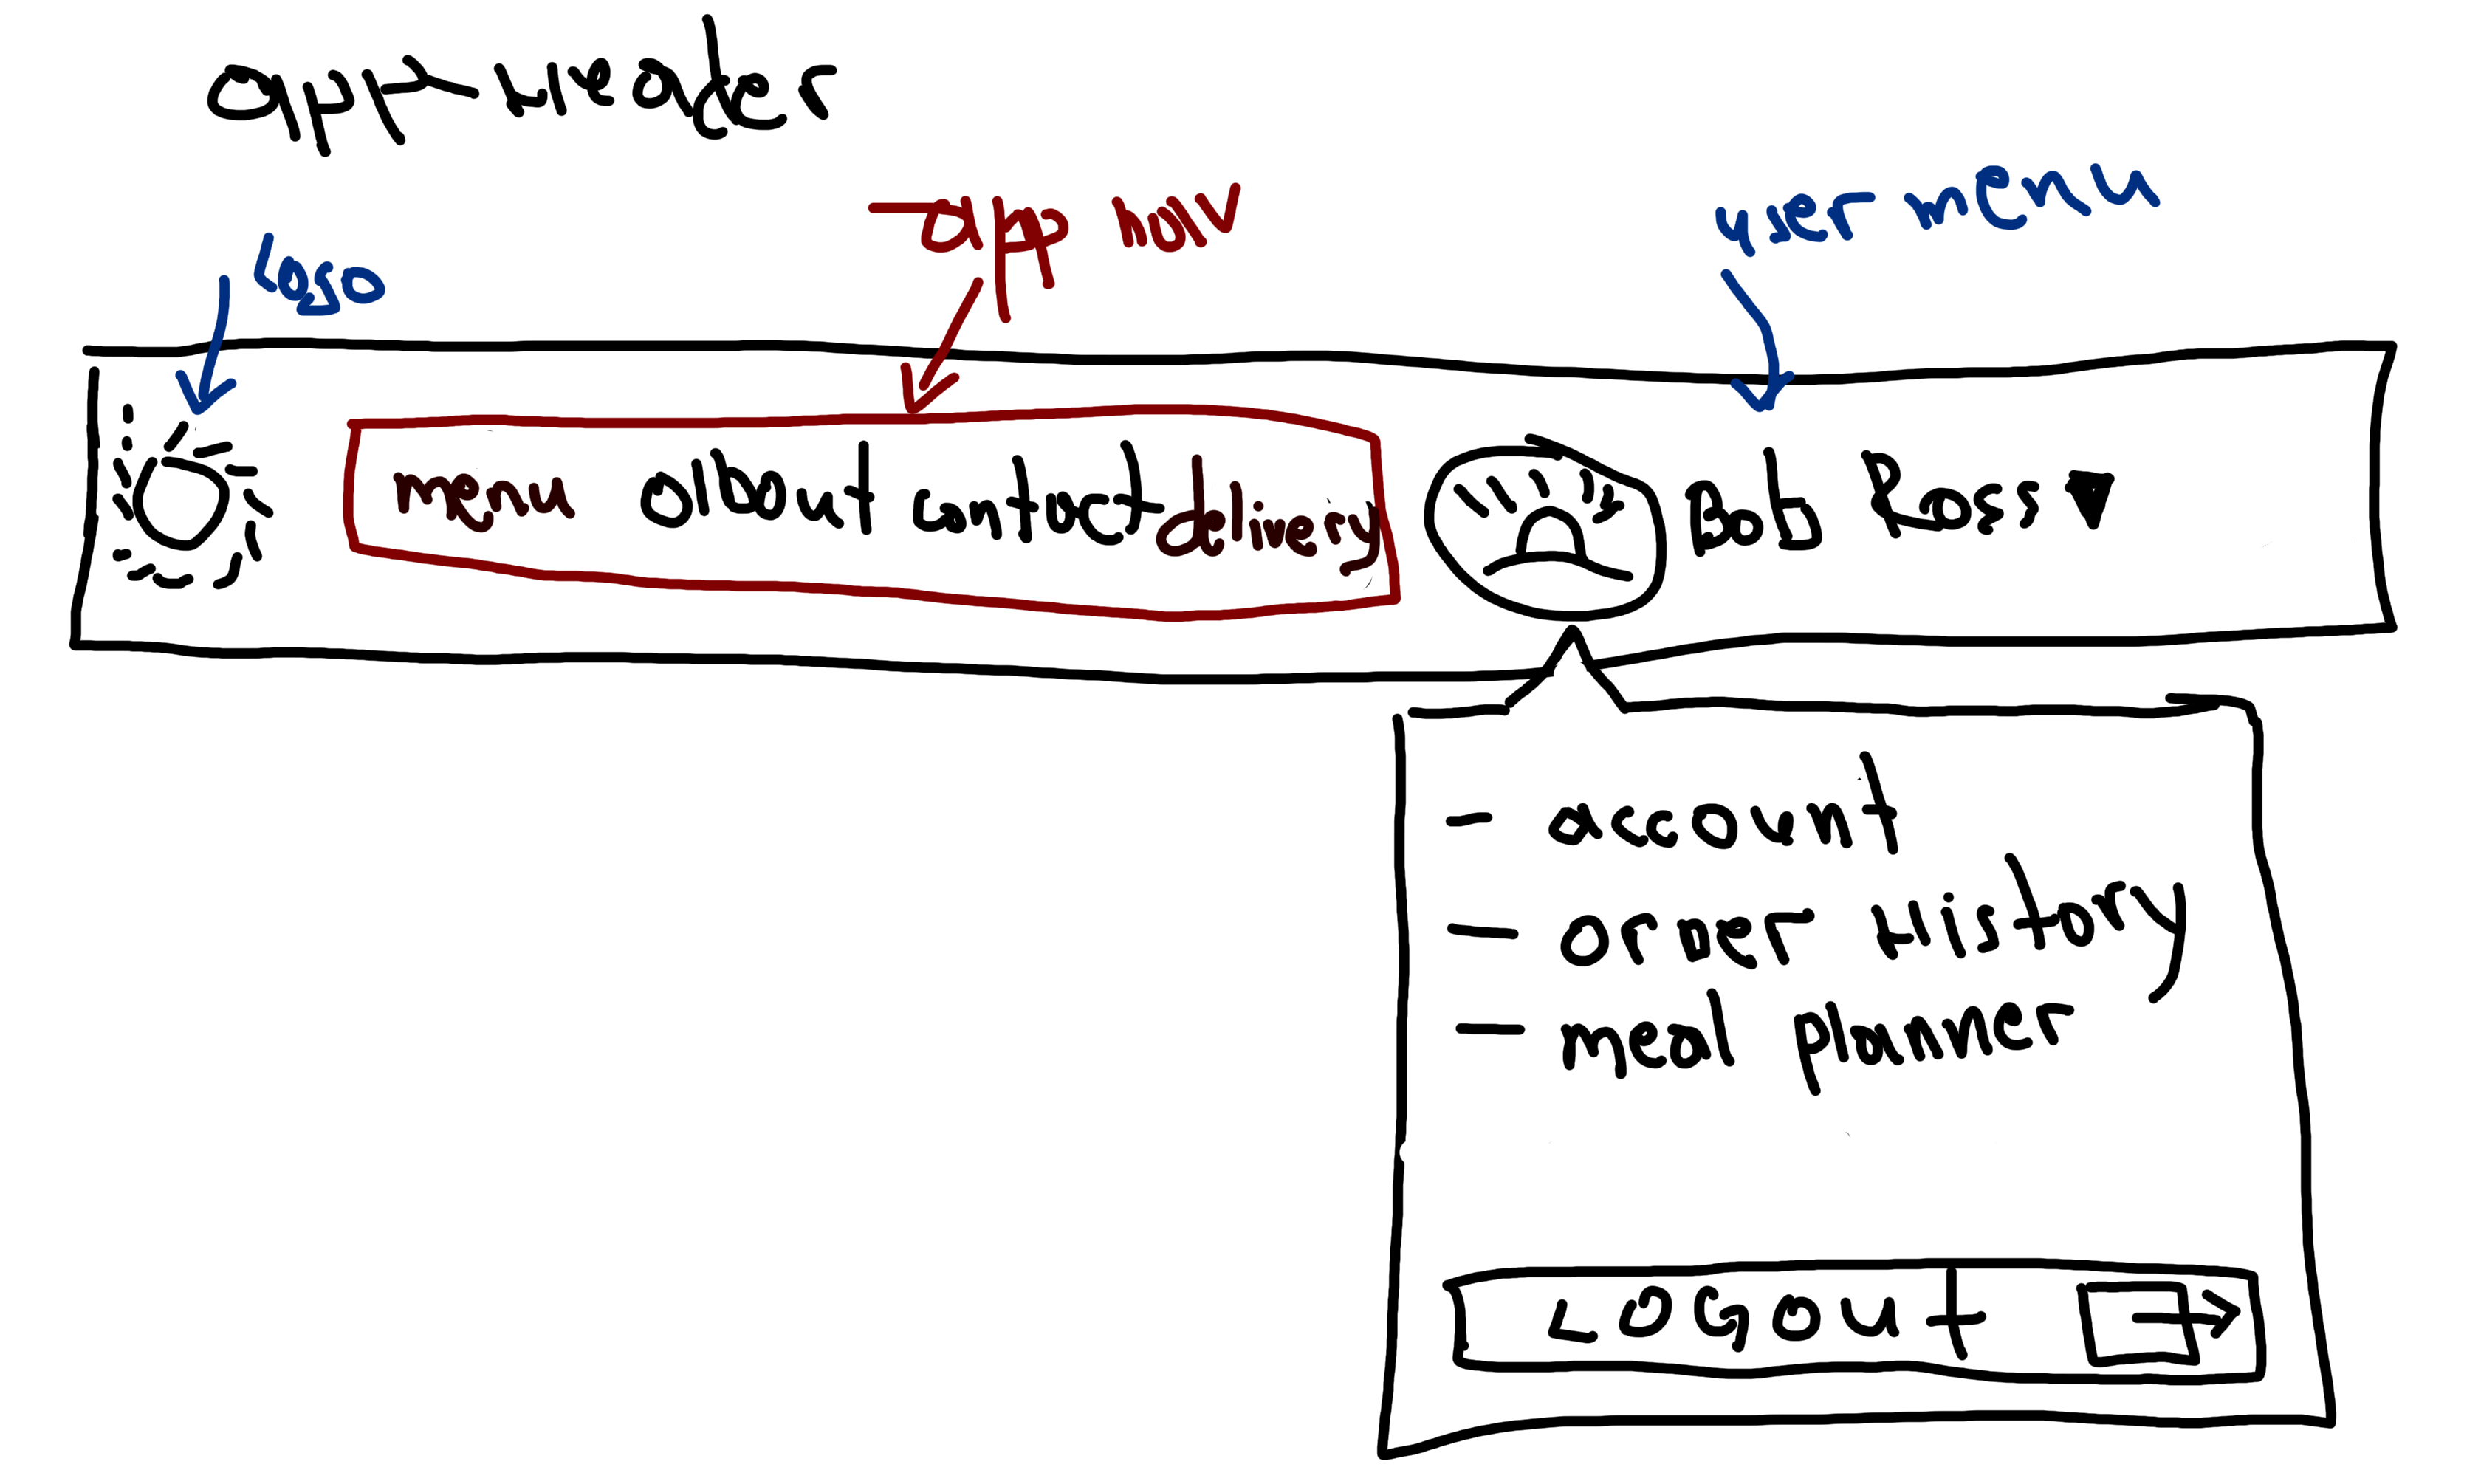 app-header
app nav
user menu
Logo
menu about contact delivery
Bob Ross
- account
- orDer History
- meal planner
LOGOut